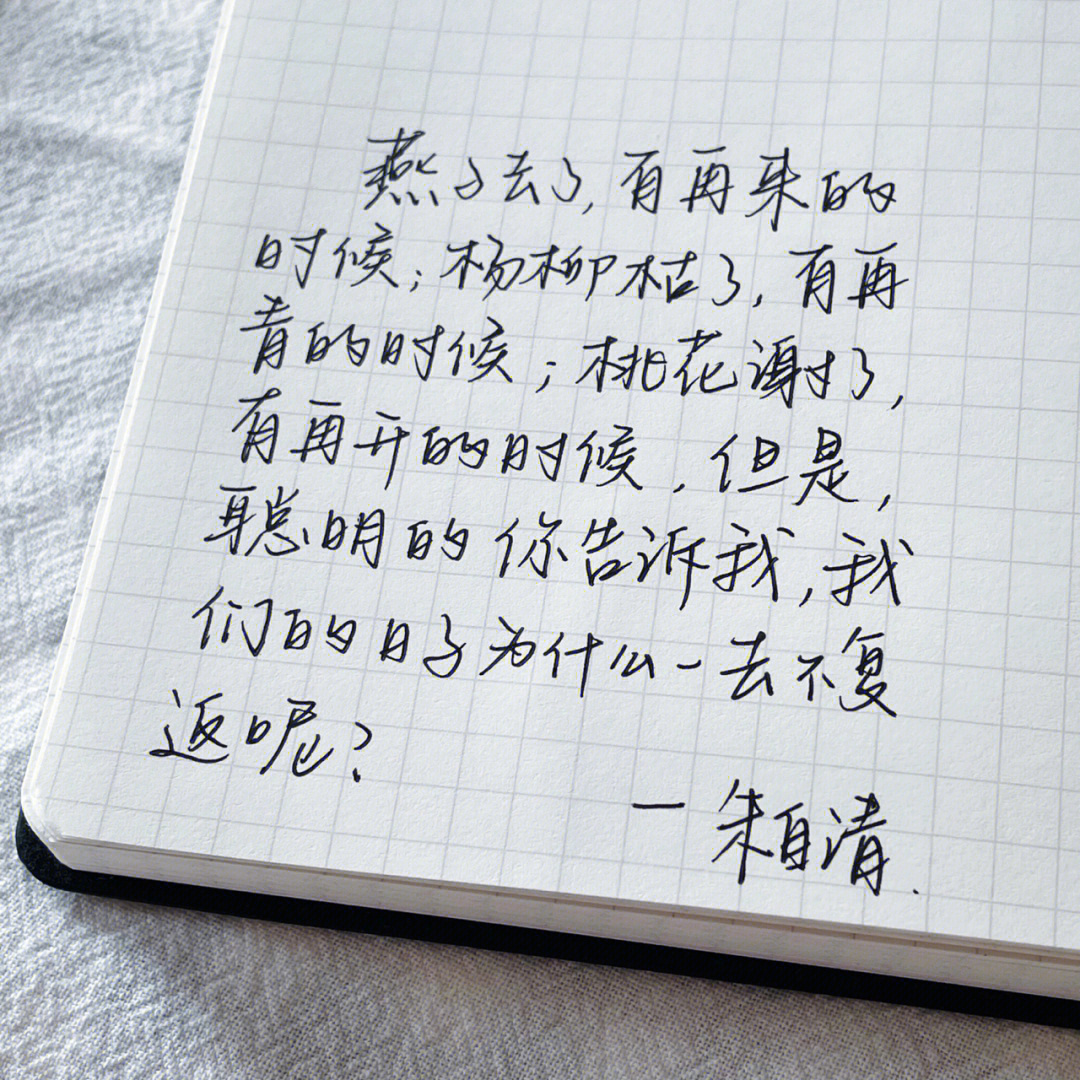 燕子去了,有再来的
时候;杨柳枯了,有再
青的时候;桃花谢了,
有再开的时候.但是,
聪明的你告诉我,我
们的日子为什么一去不复
返呢?
一朱自清.